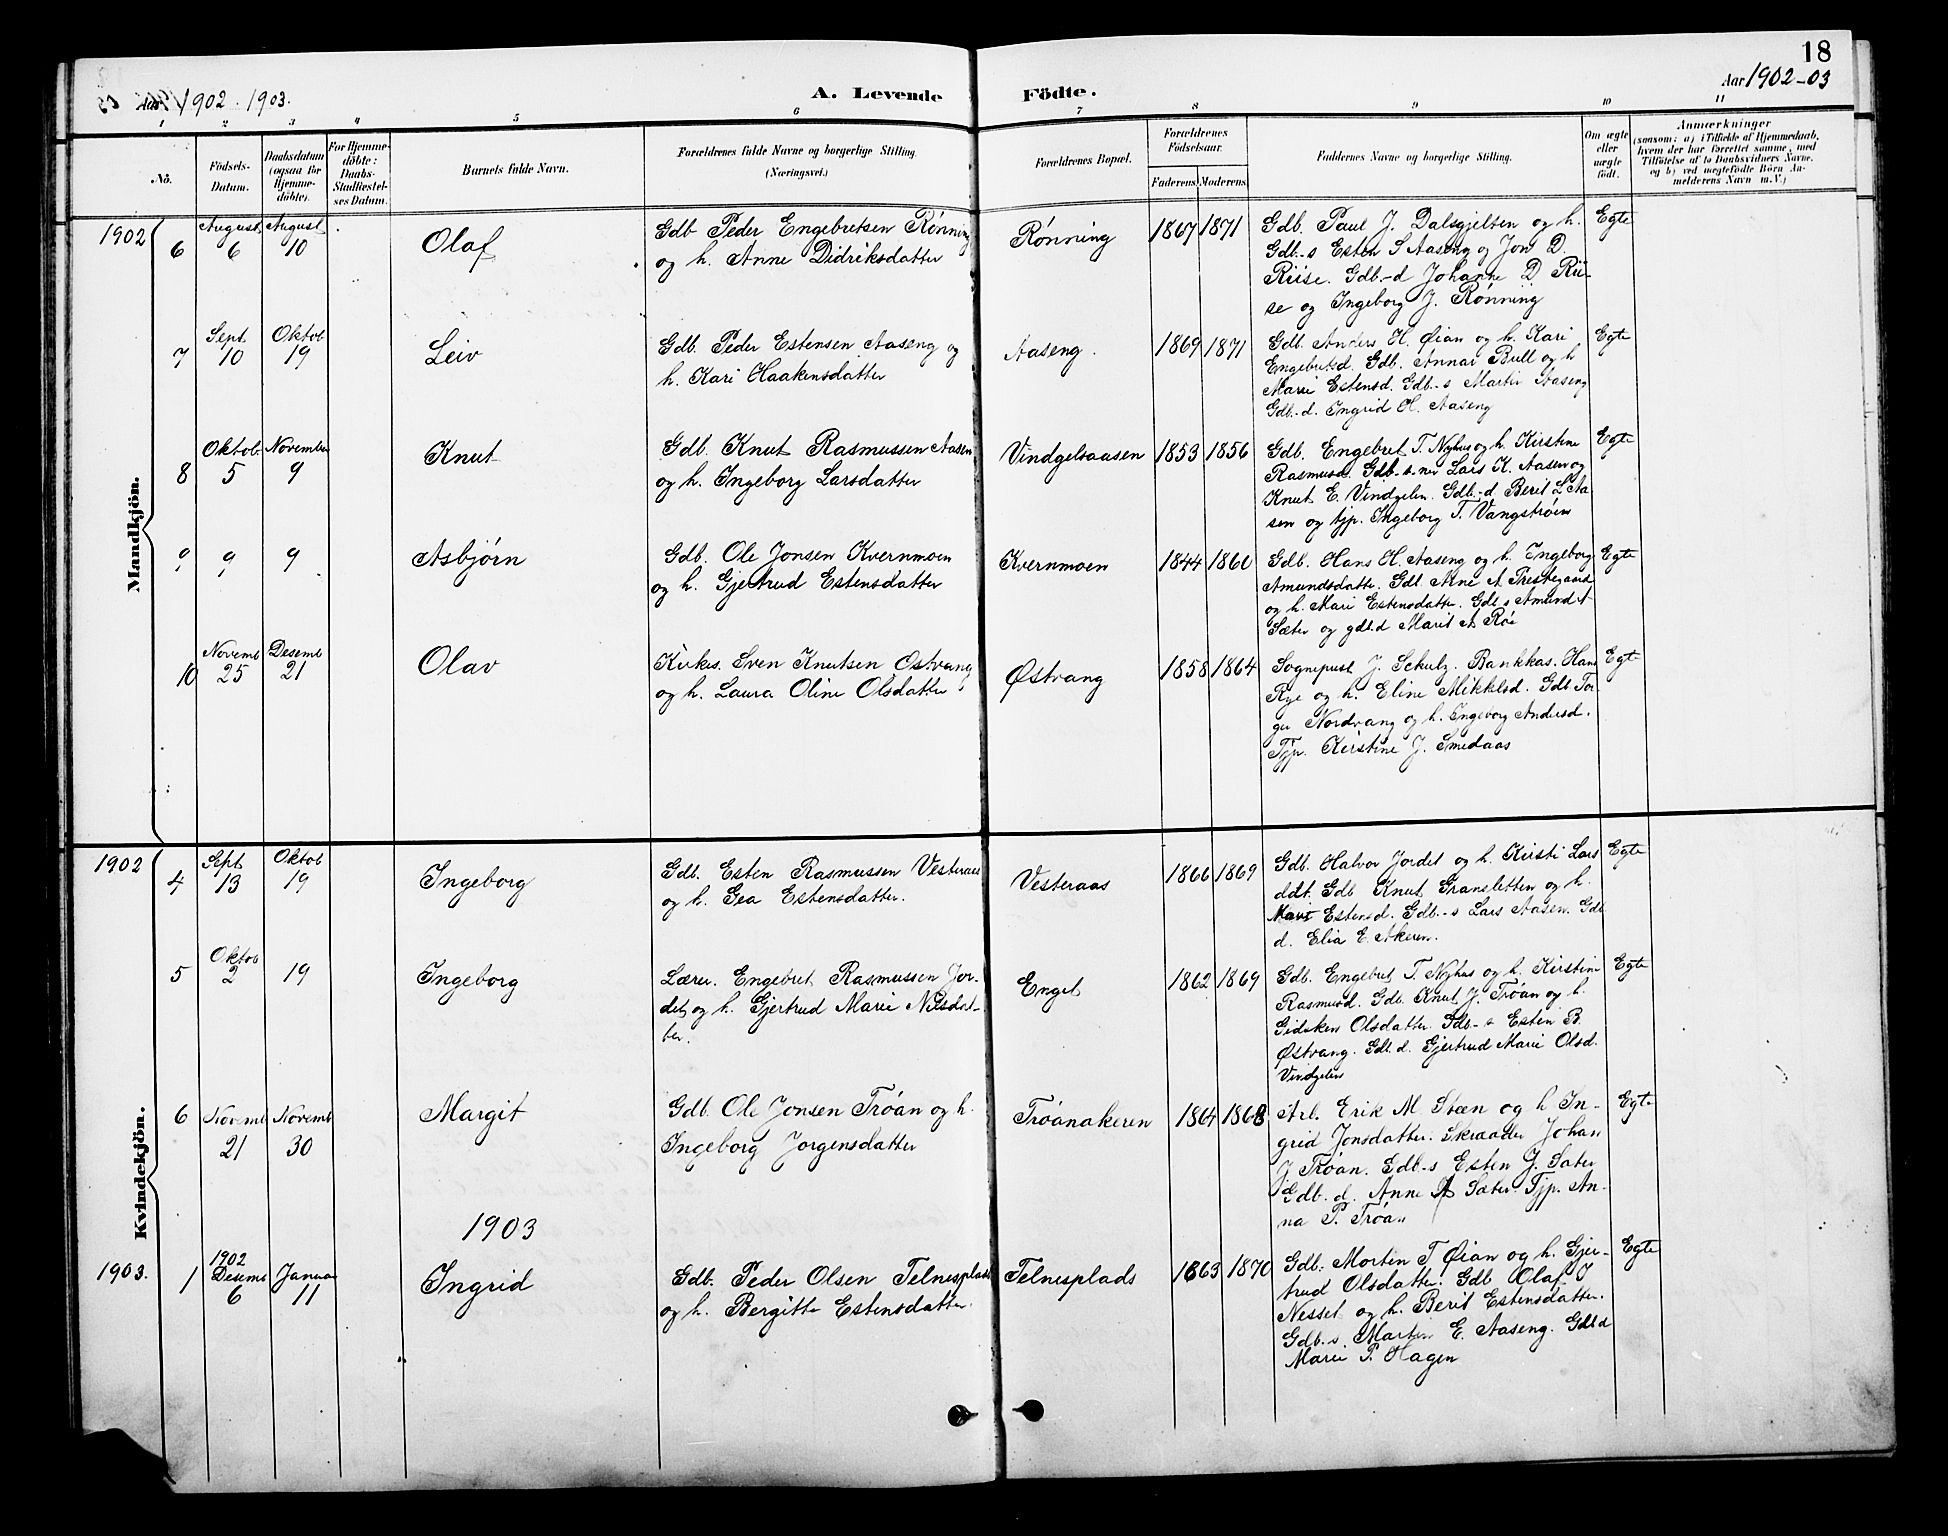 18
Aar 1902 . 1903.
A. Levende Födte.
Aar 1902-03
1 2 3 4 5 6 7 8 9 10 11
No.
Födsels-Datum.
Daabsdatum (ogsaa for Hjemme-döbte).
For Hjemme-döbte: Daabs-Stadfæstel-ses Datum.
Barnets fulde Navn.
Forældrenes fulde Navne og borgerlige Stilling. (Næringsvei.)
Forældrenes Bopæl.
Forældrenes Födselsaar.
Faderens Moderens
Faddernes Navne og borgerlige Stilling.
Om ægte eller uægte födt.
Anmærkninger
(saasom: a) i Tilfælde af Hjemmedaab,
hvem der har forrettet samme, med
Tilföielse af to Daabsvidners Navne,
og b) ved uægtefödte Börn An-
melderens Navn m. V.)
Mandkjön.
1902
6 August 6 August 10
Olaf
Gdb Peder Engebretsen Rønning
og h. Anne Didriksdatter
Rønning
1867 1871
Gdb. Paul J. Dalsgjelten og h.
Gdb.-s Esten S Aaseng og Jon D.
Riise. Gdb.-d Johanne D Rii-
se og Ingeborg J. Rønning
Egte
7 Sept 10 Oktob 19
Leiv
Gdb. Peder Estensen Aaseng og
h. Kari Haakensdatter
Aaseng.
1869 1871
Gdb. Anders H. Øian og h. Kari
Engebretsd. Gdb. Annar Bull og h
Mari Estensd. Gdb.-s Martin Aaseng
Gdb.-d. Ingrid H. Aaseng
Egte
8 Oktob. 5 November 9
Knut
Gdb. Knut Rasmussen Aasen
og h. Ingeborg Larsdatter
Vindgelsaasen
1853 1856
Gdb. Engebret T. Nyhus og h. Kirstine
Rasmusd. Gdb-s.ner Lars K. Aasen og
Knut E. Vindgelen. Gdb.-d Berit L Aa
sen og tjp. Ingeborg T. Vangstrøen
Egte
9 9 9
Asbjørn
Gdb. Ole Jonsen Kvernmoen
og h. Gjertrud Estensdatter
Kvernmoen
1844 1860
Gdb. Hans H. Aaseng og h. Ingeborg
Amundsdatter. Gdb. Arne A Prestegaard
og h. Mari Estensdatter. Gdb s Amund A
Sæter og gdb.d Marit A Røe
Egte
10 Novemb 25 Desemb 21
Olav
Kirkes. Sven Knutsen Østvang
og h. Laura Oline Olsdatter
Østvang
1858 1864
Sognepræst J. Schulz. Bankkas. Hans
Rye og h. Eline Mikkelsd. Gdb. Tor-
ger Nordvang og h. Ingeborg Andersd.
Tjp. Kirstine J. Smedaas
Egte
Kvindekjön.
1902
4 Sept 13 Oktob 19
Ingeborg
Gdb. Esten Rasmussen Vesteraas
og h. Gea Estensdatter.
Vesteraas
1866 1869
Gdb. Halvor Jordet og h. Kirsti Lars
ddt. Gdb Knut Gransletten og h.
Mari Estensd. Gdb.-s Lars Aasen. Gdb
d. Elia E. Akeren.
Egte
5 Oktob 2 19
Ingeborg
Lærer. Engebret Rasmussen Jor-
det og h. Gjertrud Marie Nilsdat-
ter.
Enget
1862 1869
Gdb. Engebret T. Nyhus og h. Kirstine
Rasmusd. Gdb. Knut J. Trøan og h.
Gidsken Olsdatter. Gdb-s Esten B.
Østvang. Gdb.d. Gjertrud Marie Olsd.
Vindgelen
Egte
6 Novemb 21 Novemb 30
Margit
Gdb. Ole Jonsen Trøan og h.
Ingeborg Jorgensdatter
Trøanakeren
1864 1868
Arb. Erik M. Stæn og h In-
grid Jonsdatter. Skrædder Johan
J Trøan. Gdb-s Esten J. Sæter
Gdb. d. Anne A Sæter. Tjp. An-
na P. Trøan
Egte
1903
1903.
1 1902 Desemb 6 Januar 11
Ingrid
Gdb. Peder Olsen Telnesplads
og h. Bergitte Estensdatter.
Telnesplads
1863 1870
Gdb. Morten T Øian og h. Gjer-
trud Olsdatter. Gdb Olaf J
Nesset og h. Berit Estensdatter.
Gdb.s. Martin E. Aaseng. Gdb d
Marie P. Hagen
Egte